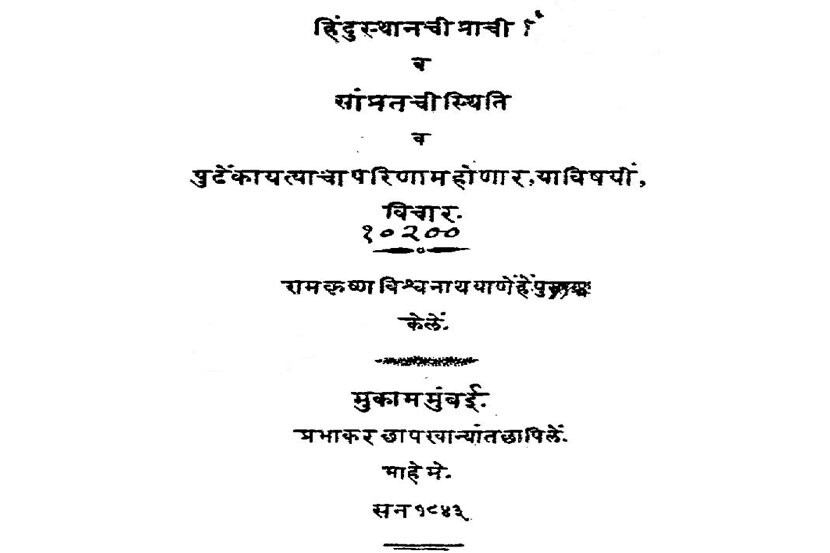 हिंदुस्थानची प्राची
व
सांप्रतची स्थिति
व
पुढें काय त्याचा परिणाम होणार, या विषयीं,
विचार.
१०२००
रामकृष्ण विश्वनाथ याणें हें
केलें.
मुकाम मुंबई.
प्रभाकर छापखान्यांत छापिलें.
माहे मे.
सन १८४३